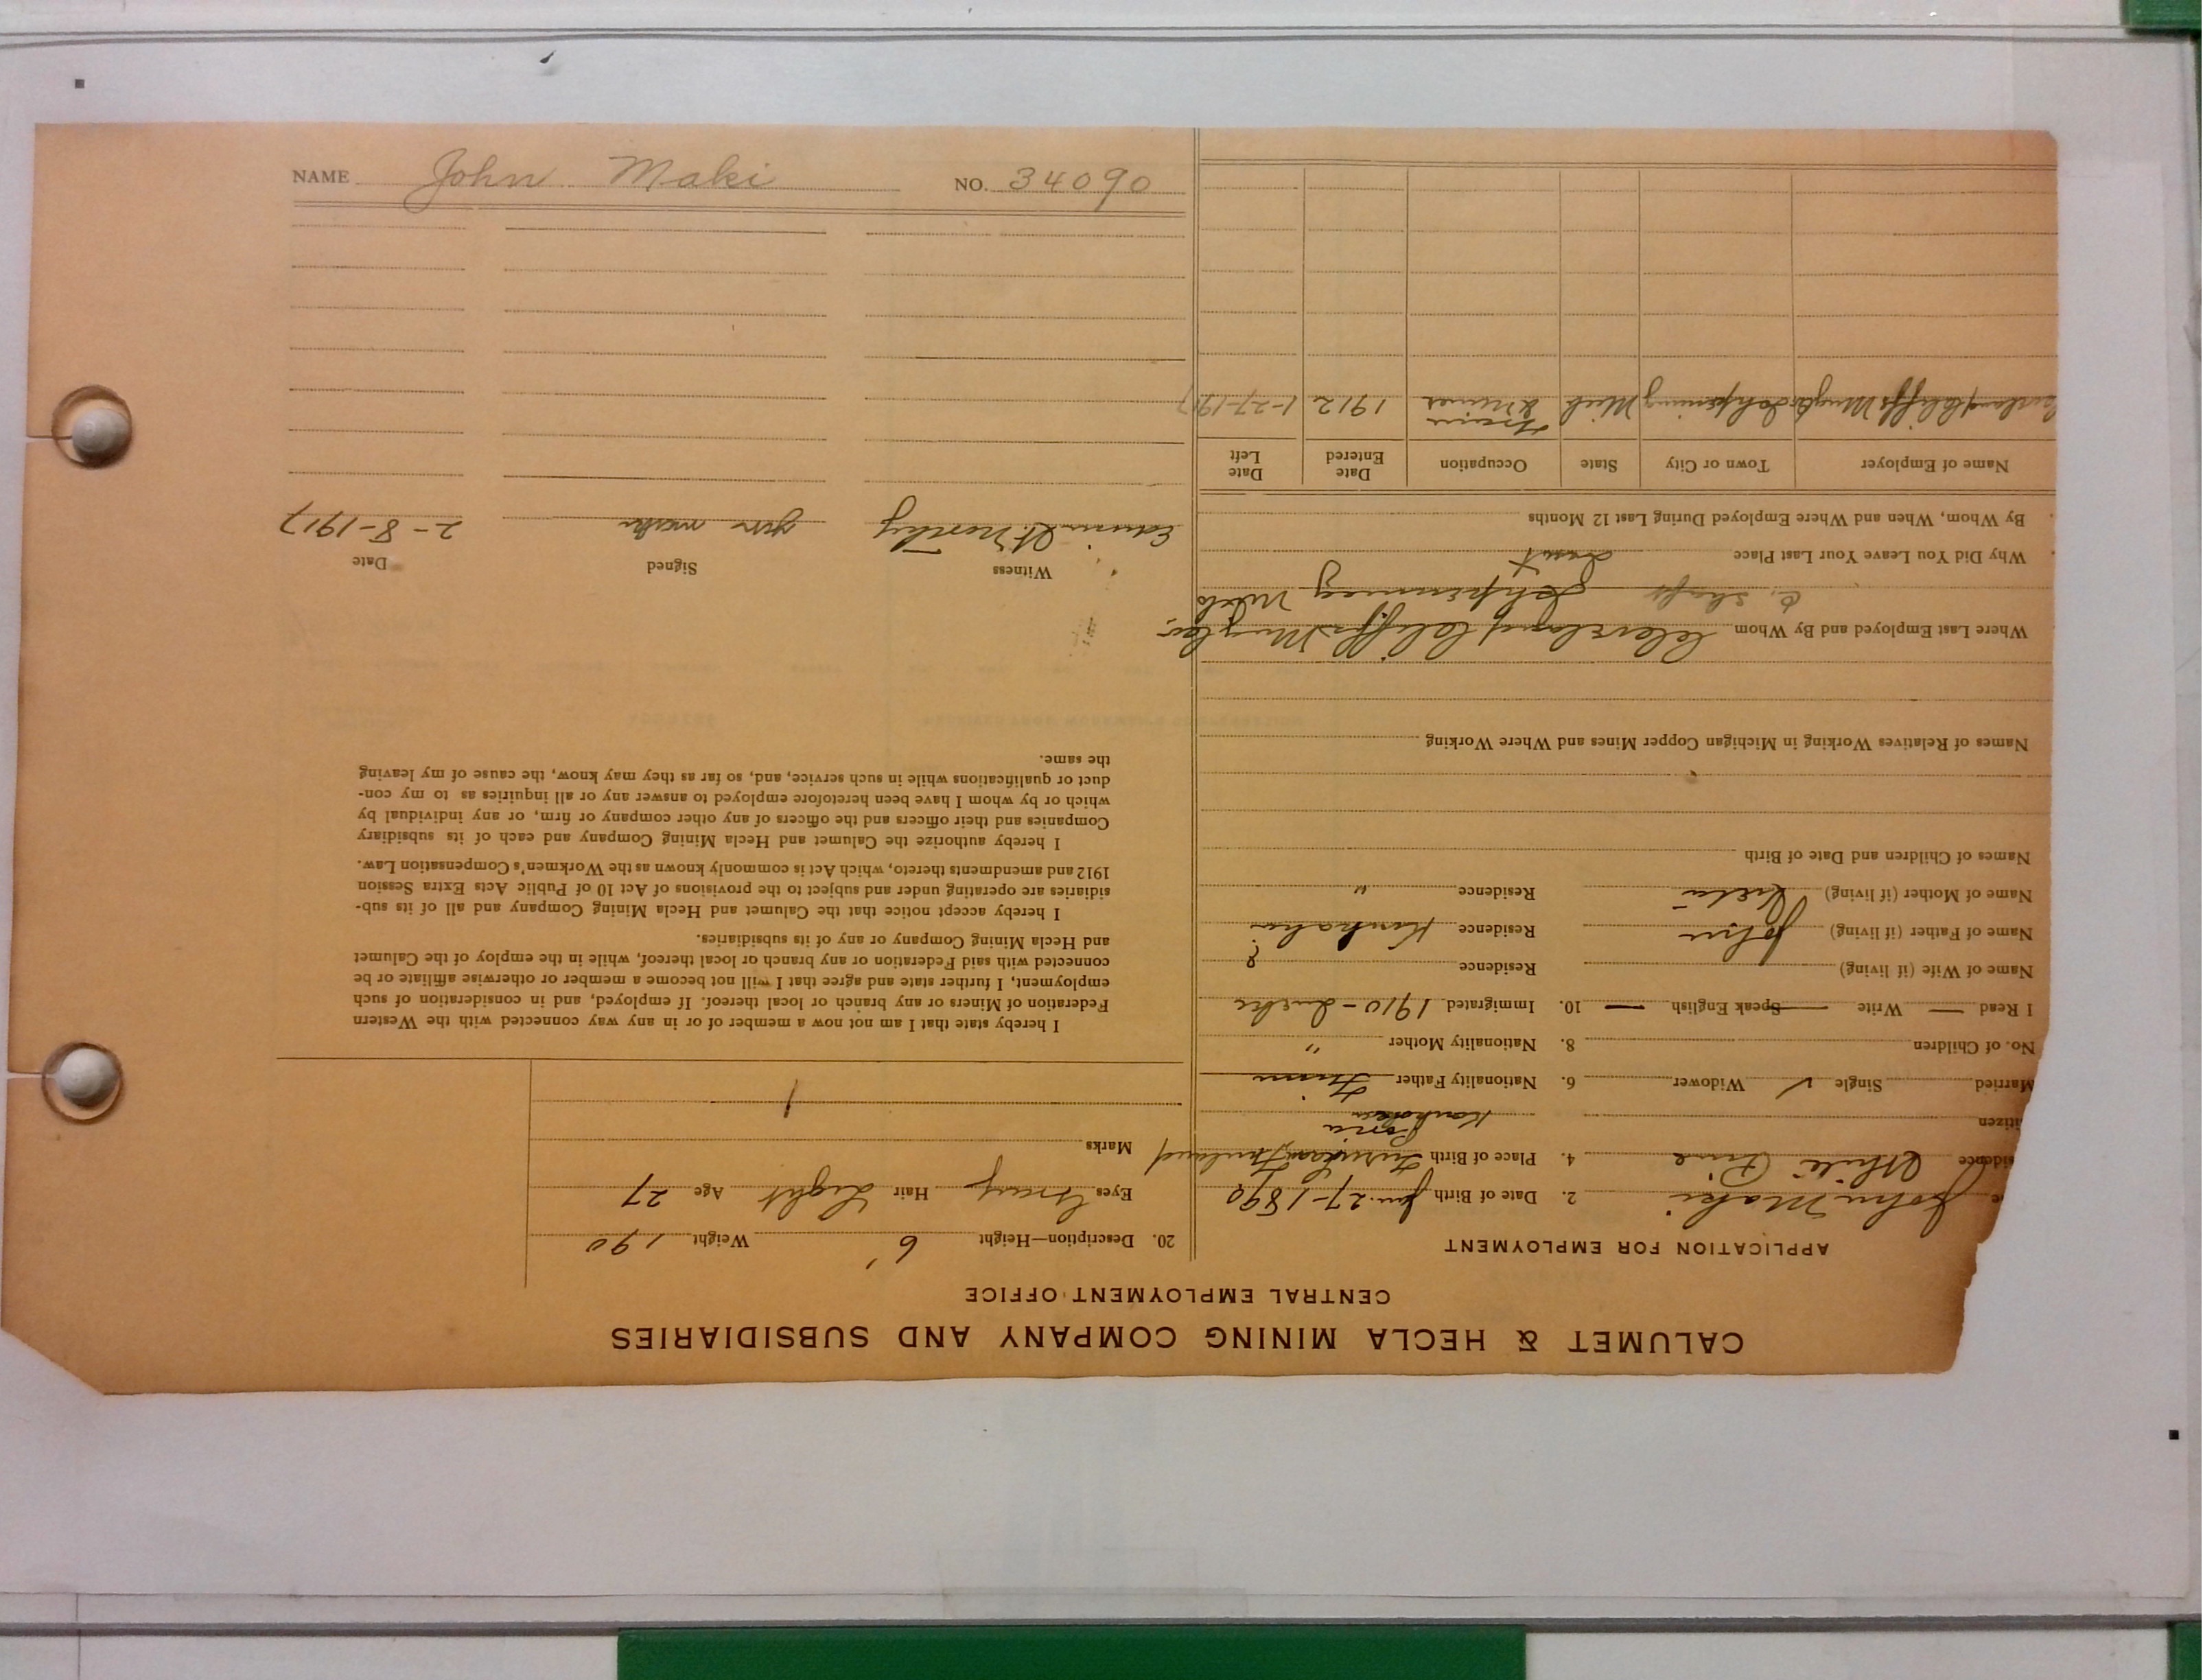 NAME John Maki NO. 34090
CALUMET & HECLA MINING COMPANY AND SUBSIDIARIES
CENTRAL EMPLOYMENT OFFICE
APPLICATION FOR EMPLOYMENT
John Maki 2. Date of Birth Jan. 27-1890
idence White Pine 4. Place of Birth Finland
itizen
Married Single ✓ Widower 6. Nationality Father Finn
No. of Children 8. Nationality Mother "
I Read — Write — Speak English — 10. Immigrated 1910-
Name of Wife (if living) Residence
Name of Father (if living) John Residence Kauhava ?
Name of Mother (if living) Residence "
Names of Children and Date of Birth
Names of Relatives Working in Michigan Copper Mines and Where Working
Where Last Employed and By Whom Cleveland Cliffs Mng Co.
C. Shaft Ishpeming Mich
Why Did You Leave Your Last Place Quit
By Whom, When and Where Employed During Last 12 Months
Name of Employer Town or City State Occupation Date Entered Date Left
Cliffs Mng Co Ishpeming Mich Trammer & miner 1912 1-27-1917
20. Description—Height 6' Weight 190
Eyes Gray Hair Light Age 27
Marks
I hereby state that I am not now a member of or in any way connected with the Western
Federation of Miners or any branch or local thereof. If employed, and in consideration of such
employment, I further state and agree that I will not become a member or otherwise affiliate or be
connected with said Federation or any branch or local thereof, while in the employ of the Calumet
and Hecla Mining Company or any of its subsidiaries.
I hereby accept notice that the Calumet and Hecla Mining Company and all of its sub-
sidiaries are operating under and subject to the provisions of Act 10 of Public Acts Extra Session
1912 and amendments thereto, which Act is commonly known as the Workmen's Compensation Law.
I hereby authorize the Calumet and Hecla Mining Company and each of its subsidiary
Companies and their officers and the officers of any other company or firm, or any individual by
which or by whom I have been heretofore employed to answer any or all inquiries as to my con-
duct or qualifications while in such service, and, so far as they may know, the cause of my leaving
the same.
Witness Signed Date
Edwin 2-8-1917